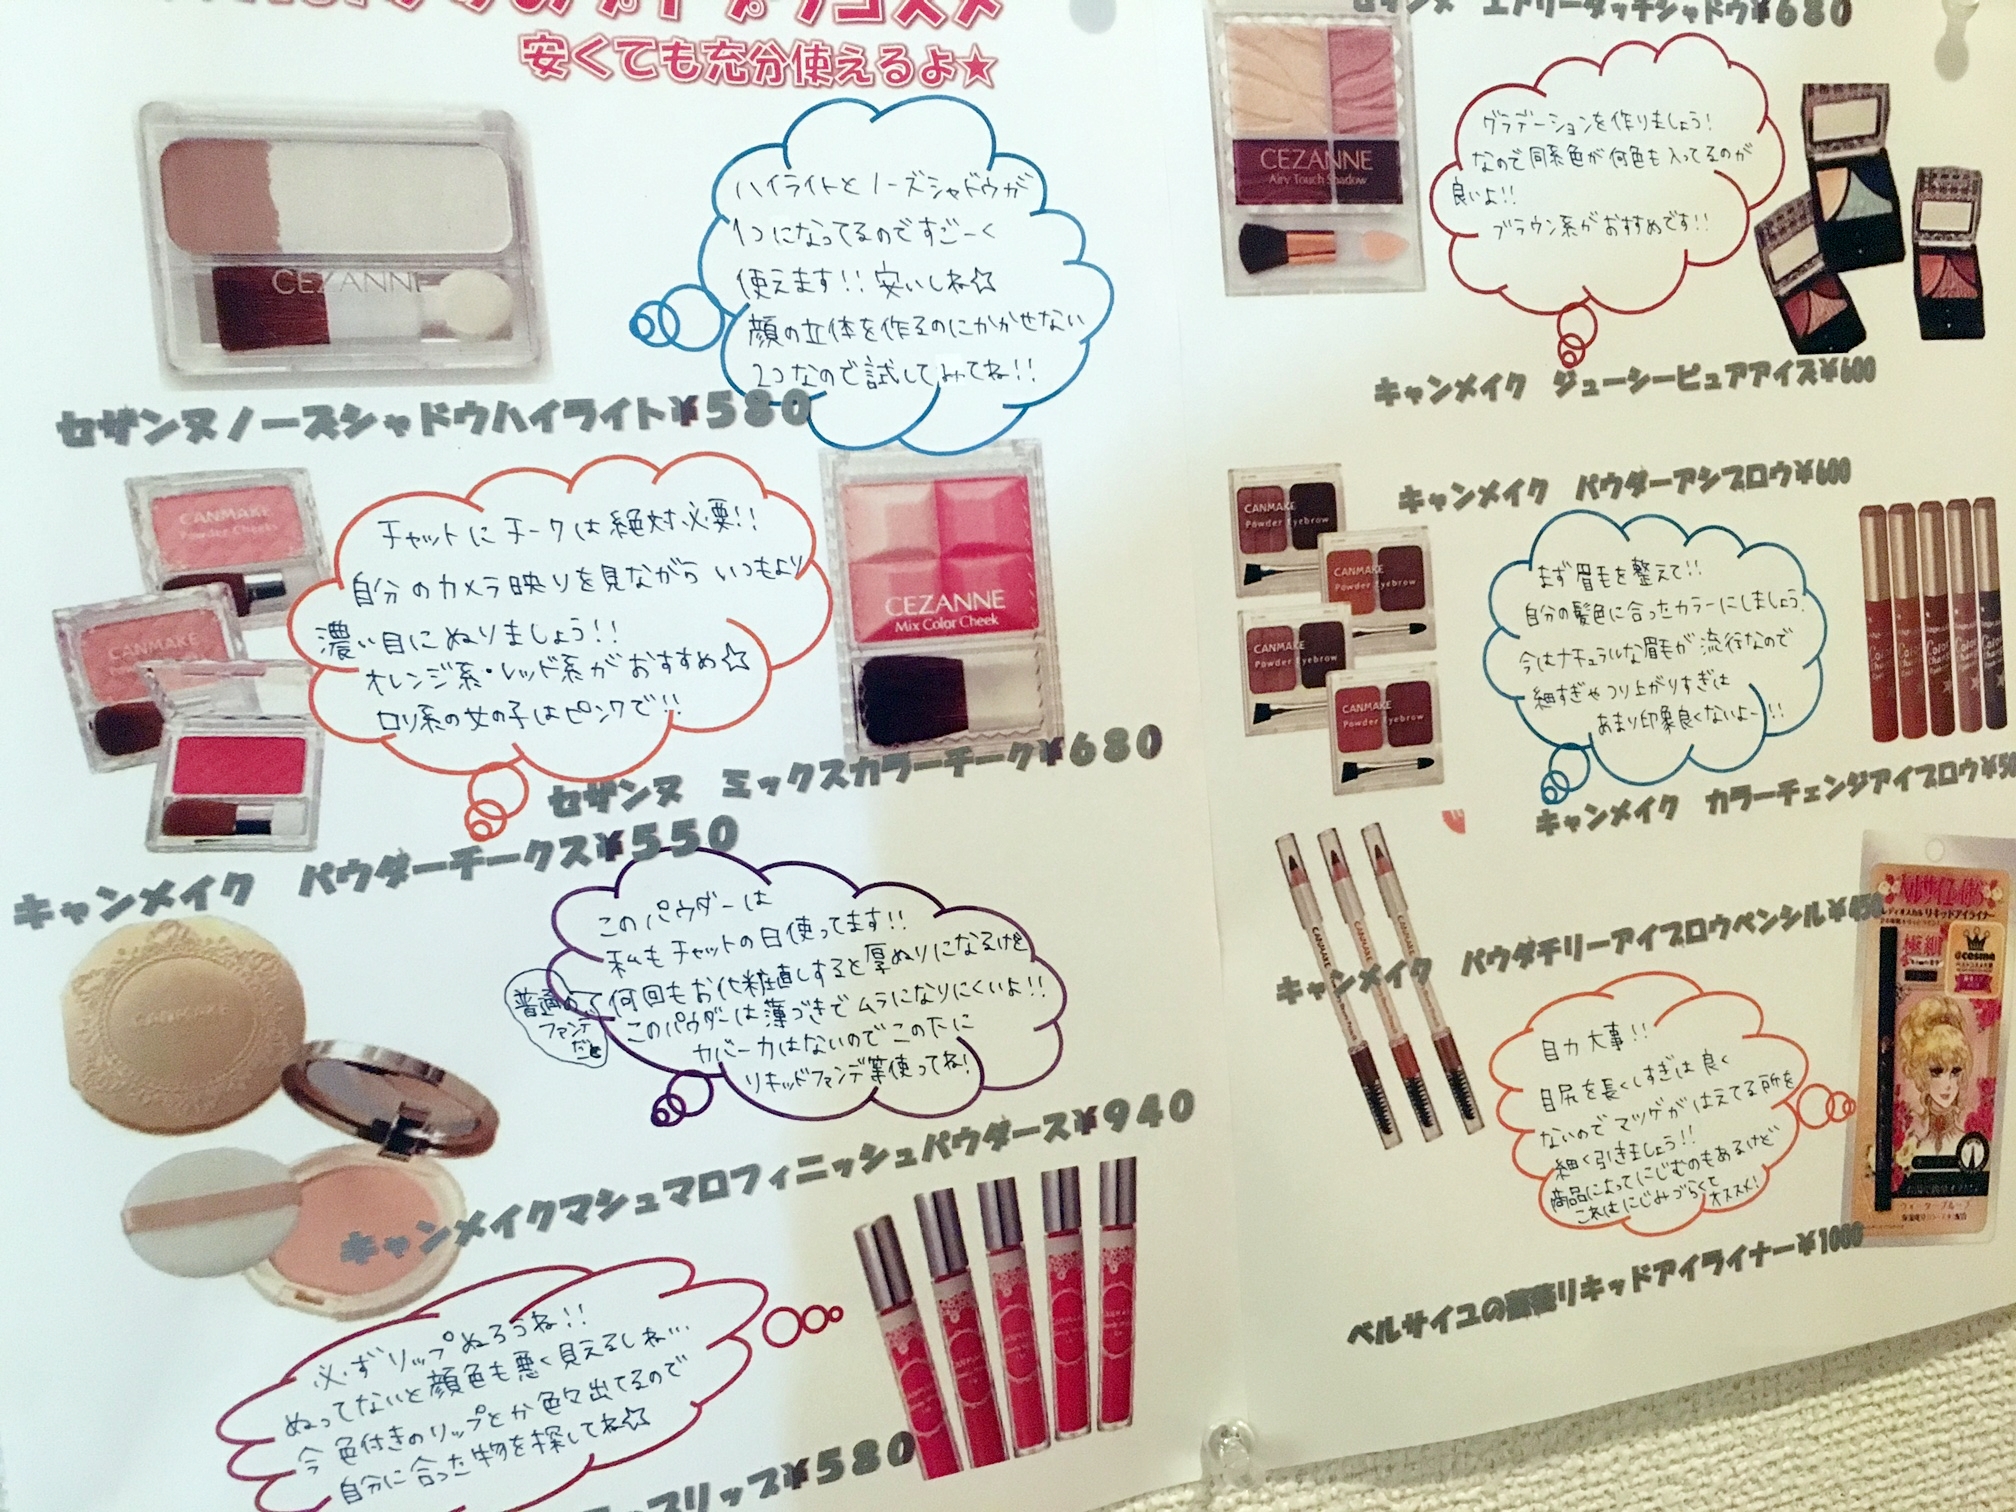 プチプラコスメ
安くても充分使えるよ★
CEZANNE
ハイライトとノーズシャドウが
1つになってるのですごーく
使えます!!安いしね☆
顔の立体を作るのにかかせない
2つなので試してみてね!!
セザンヌノーズシャドウハイライト¥580
CANMAKE
Powder Cheeks
CANMAKE
チャットにチークは絶対必要!!
自分のカメラ映りを見ながらいつもより
濃い目にぬりましょう!!
オレンジ系・レッド系がおすすめ☆
ロリ系の女の子はピンクで!!
CEZANNE
Mix Color Cheek
セザンヌ ミックスカラーチーク¥680
キャンメイク パウダーチークス¥550
CANMAKE
このパウダーは
私もチャットの日使ってます!!
普通の
ファンデ
だと
何回もお化粧直しすると厚ぬりになるけど
このパウダーは薄づきでムラになりにくいよ!!
カバー力はないのでこの下に
リキッドファンデ等使ってね!
キャンメイクマシュマロフィニッシュパウダース¥940
必ずリップぬろうね!!
ぬってないと顔色も悪く見えるしね…
今色付きのリップとか色々出てるので
自分に合った物を探してね☆
リップ¥580
セザンヌ エアリータッチシャドウ¥680
CEZANNE
Airy Touch Shadow
グラデーションを作りましょう!
なので同系色が何色も入ってるのが
良いよ!!
ブラウン系がおすすめです!!
キャンメイク ジューシーピュアアイズ¥600
キャンメイク パウダーアシブロウ¥600
CANMAKE
Powder Eyebrow
CANMAKE
Powder Eyebrow
CANMAKE
Powder Eyebrow
CANMAKE
Powder Eyebrow
まず眉毛を整えて!!
自分の髪色に合ったカラーにしましょう。
今はナチュラルな眉毛が流行なので
細すぎやつり上がりすぎは
あまり印象良くないよー!!
キャンメイク カラーチェンジアイブロウ¥50
CANMAKE
CANMAKE
CANMAKE
キャンメイク パウダチリーアイブロウペンシル¥450
目力大事!!
目尻を長くしすぎは良く
ないのでマツゲがはえてる所を
細く引きましょう!!
商品によってにじむのもあるけど
これはにじみづらくて
オススメ!
リキッドアイライナー
極細
@cosme
ウォータープルーフ
ベルサイユの薔薇リキッドアイライナー¥1000